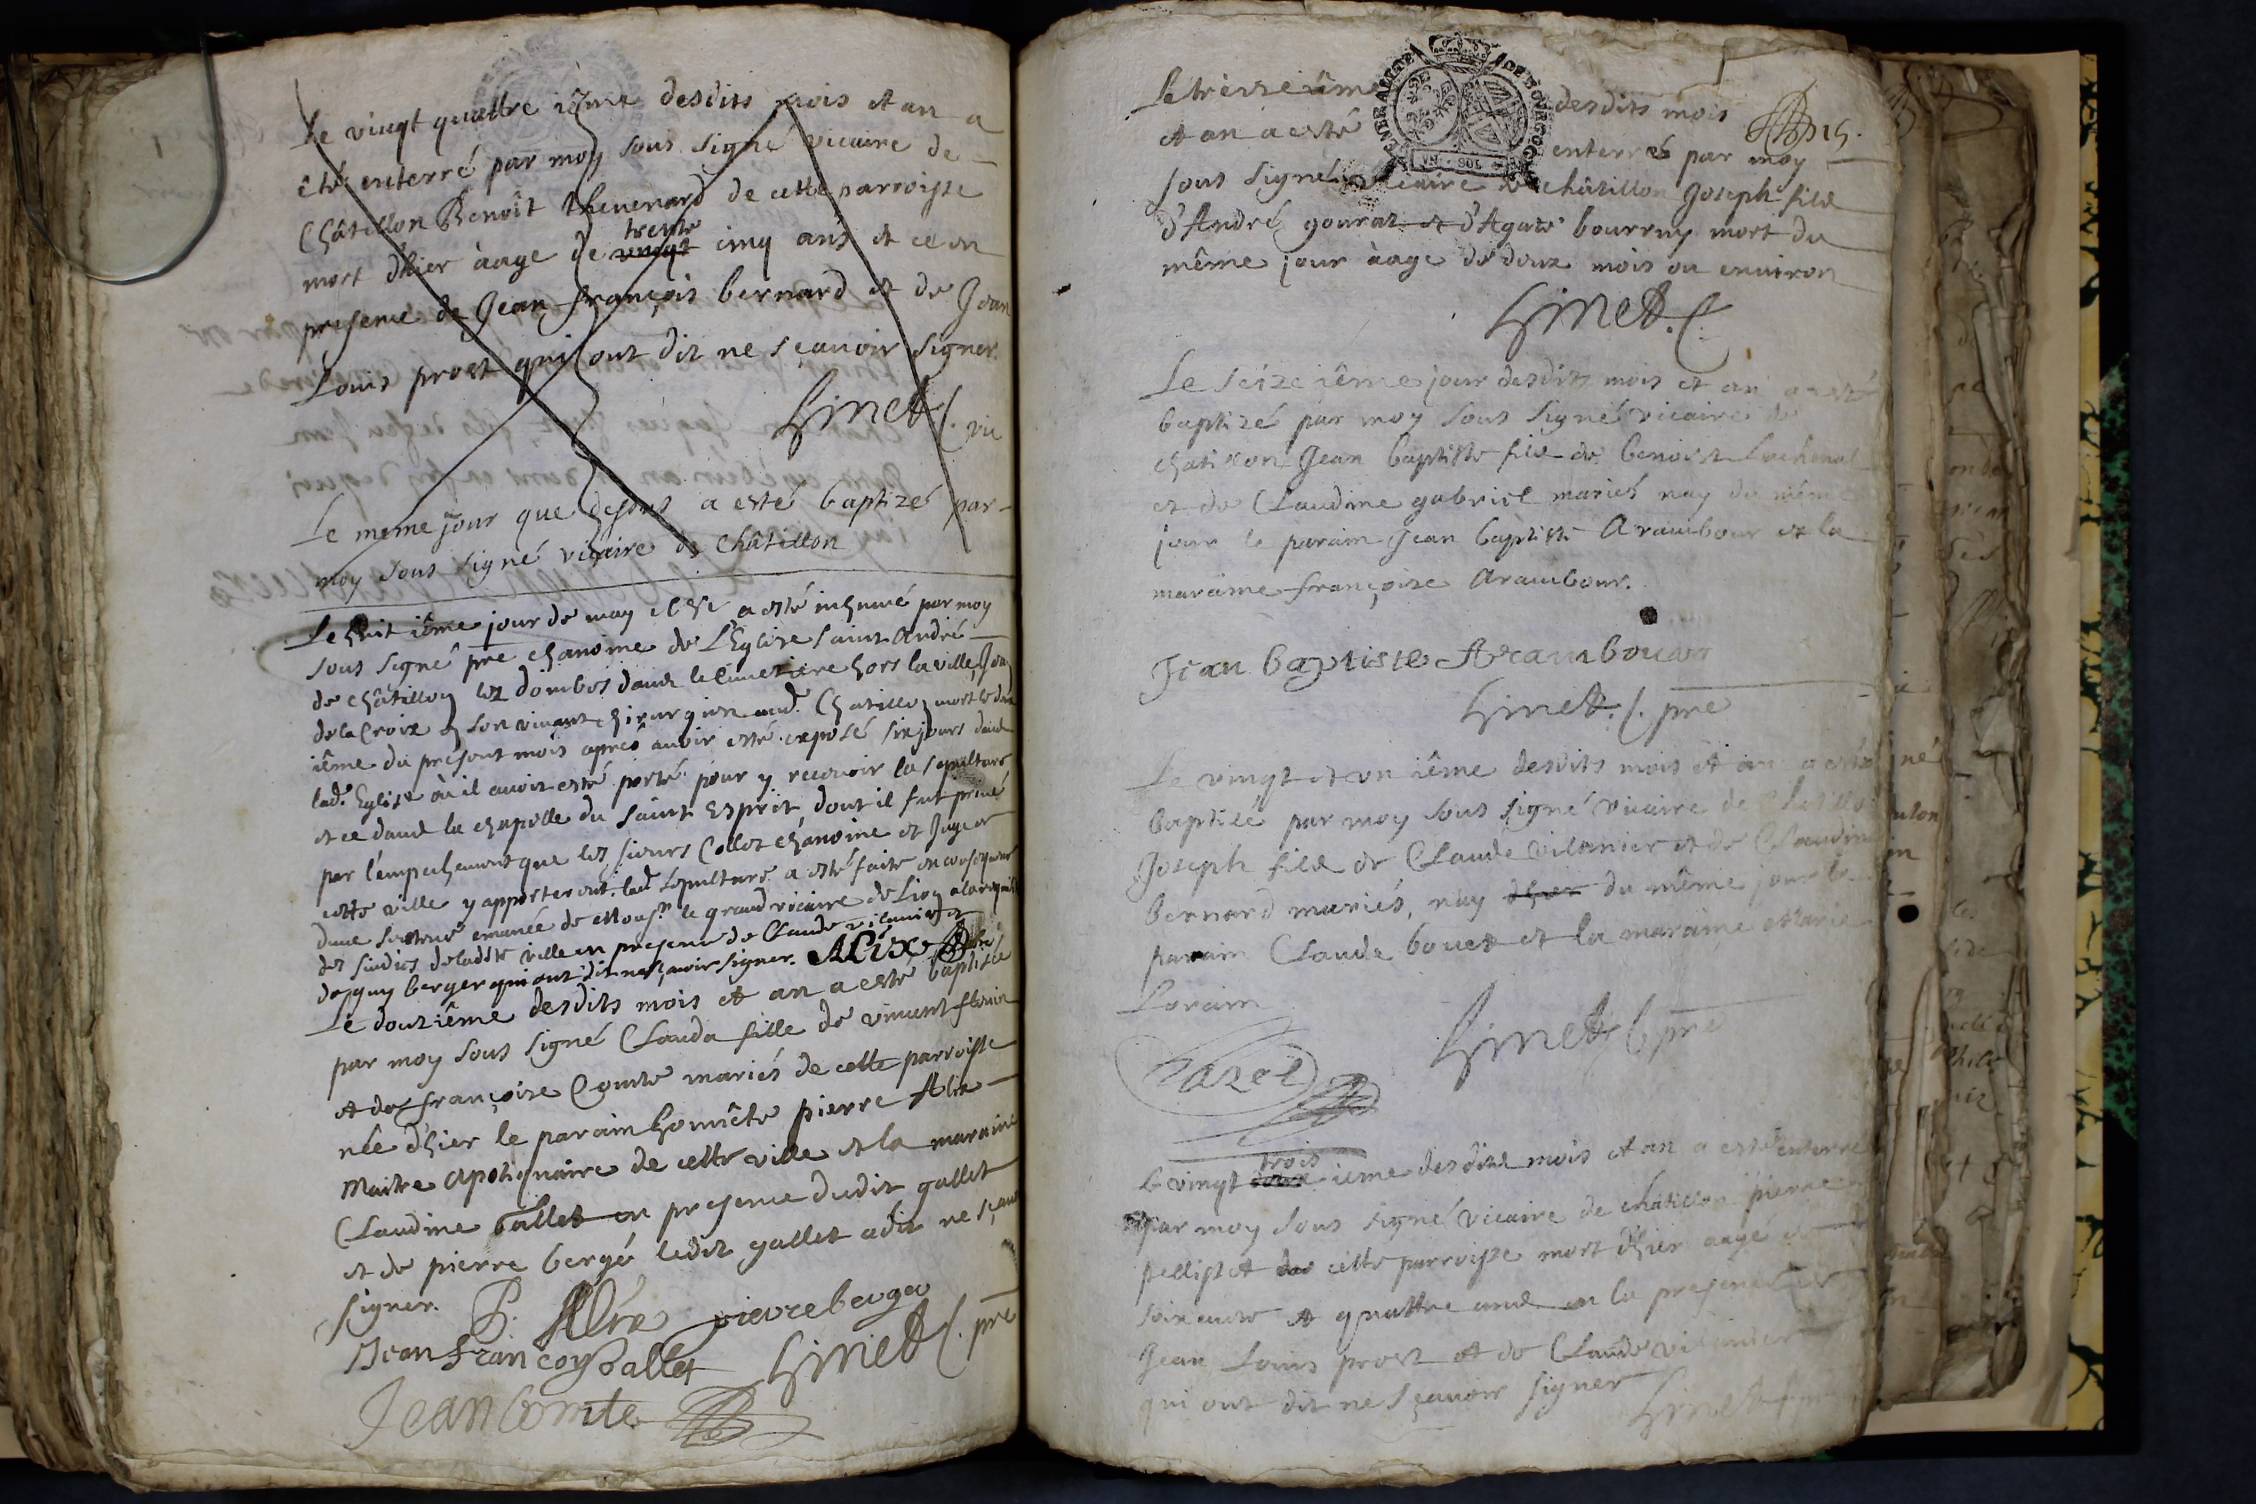 Le vingt quattre ième desdits mois et an a
été enterré par moy sous signé vicaire de
Châtillon Benoît thenenard de cette parroisse
mort d'hier àage de vingt trente cinq ans et ce en
presence de Jean françois bernard et de Jean
Louis prost qui ont dit ne sçavoir signer.
Ginet C. vic
Le meme jour que dessus a esté baptizé par
moy sous signé vicaire de Châtillon
Le huit ième jour de may a esté inhumé par moy
sous signé pre chanoine de L'Eglise saint André
de Châtillon les dombes dans le Cimetiere hors la ville Jean
de la Croix en son vivant chirurgien aud. Chatillon mort le deux
ième du présent mois aprés avoir esté exposé six jours dans
lad. Eglise où il avoit esté porté pour y recevoir la sepulture
et ce dans la chapelle du saint Esprit dont il fut privé
par l'empechement que les sieurs Collet chanoine et Juge de
cette ville y apporteront. lad. sepulture a esté faite en consequence
d'une sentence emanée de Monsr. le grand vicaire de Lion a la requête
des sindics de ladite ville en presence de Claude vilanier et
de guy berger qui ont dit ne sçavoir signer. ALIX
Le douzième desdits mois et an a esté baptisée
par moy sous signé Clauda fille de vincent
et de françoise Comte mariés de cette parroisse
née d'hier le parain honnête pierre Alix
Maitre Apotiquaire de cette ville et la maraine
Claudine Gallet en presence dudit gallet
et de pierre bergé ledit gallet a dit ne sçavoir
signer.
P. Alix pierre berger
Jean françoy Gallet Ginet C. pre
Jean Comte
GENERALITE DE BOURGOG
VN SOL
Le treizeième desdits mois
et an a esté enterré par moy
sous signé vicaire de châtillon Joseph fils
d'André gourat et d'Agate bourruy mort du
même jour àage de douz mois ou environ
Ginet. C.
Le seize ième jour desdits mois et an a esté
baptizé par moy sous signé vicaire de
chatillon Jean baptiste fils de benoist Lachenal
et de Claudine gabriel mariés nay du même
jour le parain Jean baptiste Arambour et la
maraine françoise Arambour.
Jean baptiste Arambour
Ginet. C. pre
Le vingt et un ième desdits mois et an a esté
baptisé par moy sous signé vicaire de Chatillon
Joseph fils de Claude vilanier et de Claudine
bernard mariés, nay d'hier du même jour le
parain Claude bouet et la maraine Marie
Lorain
Cazot Ginet C. pre
Le vingt deux trois ième desdits mois et an a esté enterré
par moy sous signé vicaire de chatillon pierre
pellissot de cette parroisse mort d'hier aagé de
soixante et quattre ans en la presence de
Jean Louis prost et de Claude vilanier
qui ont dit ne sçavoir signer Ginet